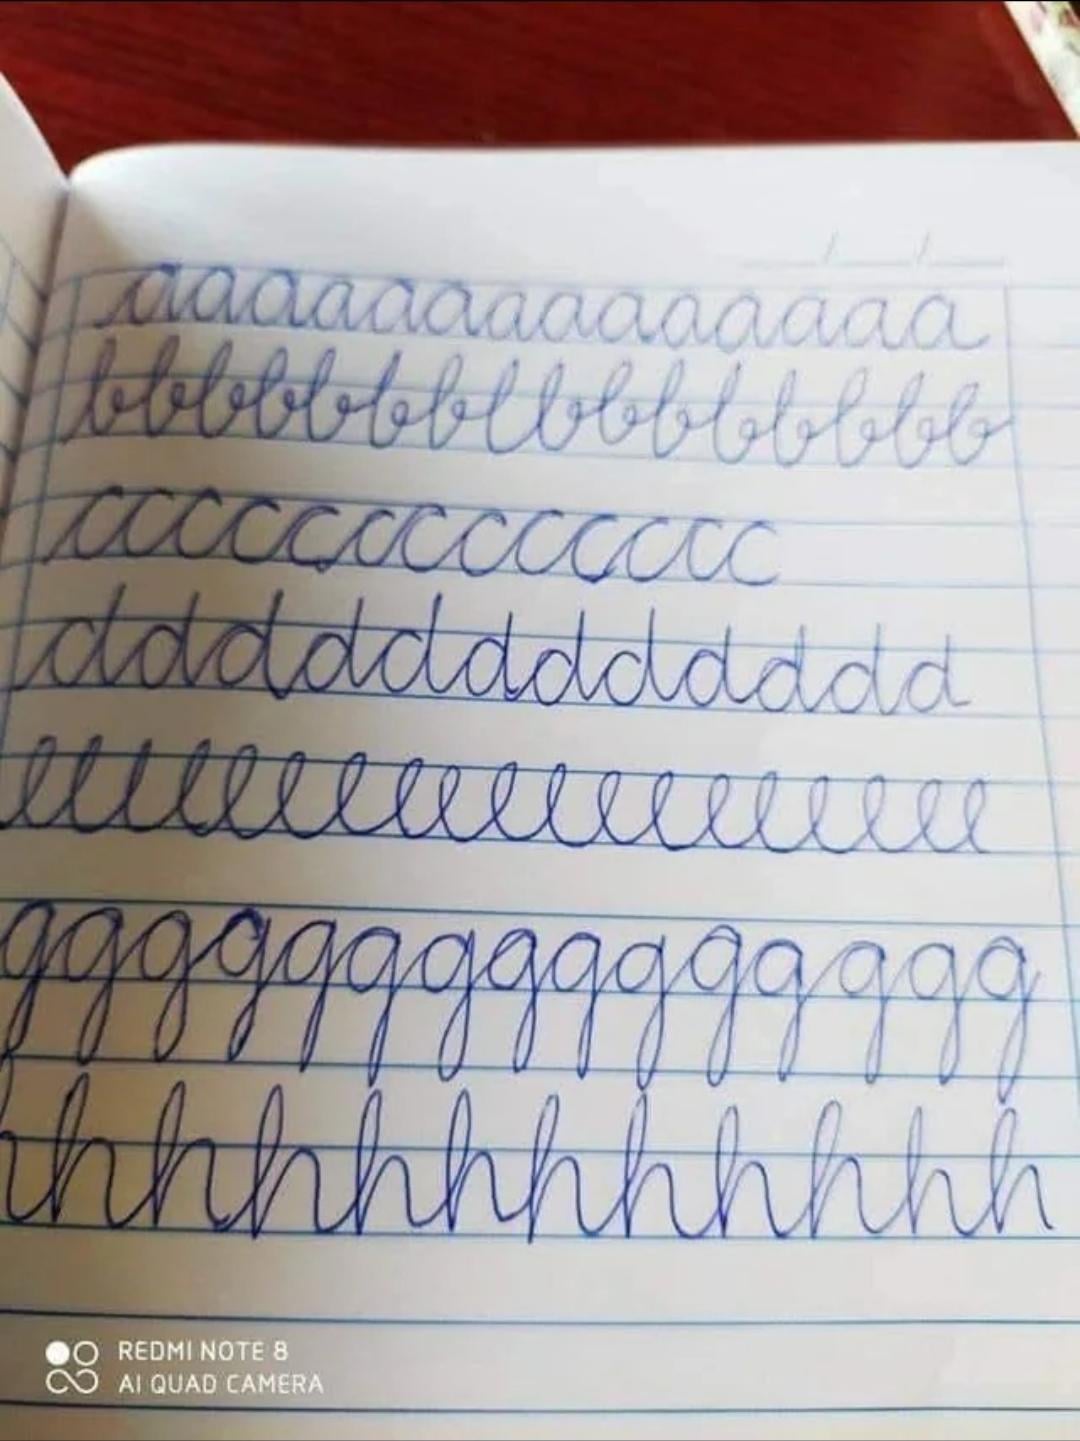 aaaaaaaaaaaaaaa
bbbbbbblbbbbbbbb
ccccccccccccccc
ddddddddddddd
eeeeeeeeeeeeeeeeeeee
ggggggggggggggg
hhhhhhhhhhhh
REDMI NOTE 8
AI QUAD CAMERA